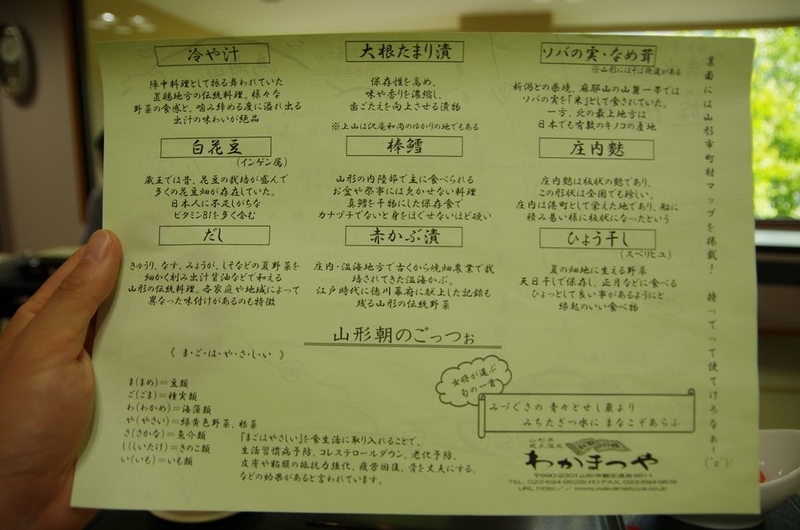 冷や汁
陣中料理として振る舞われていた
置賜地方の伝統料理。様々な
野菜の食感と、噛み締める度に溢れ出る
出汁の味わいが絶品
大根たまり漬
保存性を高め、
味や香りを濃縮し、
歯ごたえを向上させる漬物
※上山は沢庵和尚のゆかりの地でもある
ソバの実・なめ茸
※山形にはそば街道がある
新潟との県境、麻耶山の山麓一帯では
ソバの実を「米」として食されていた。
一方、北の最上地方は
日本でも有数のキノコの産地
白花豆
(インゲン属)
蔵王では昔、花豆の栽培が盛んで
多くの花豆畑が存在していた。
日本人に不足しがちな
ビタミンB1を多く含む
棒鱈
山形の内陸部で主に食べられる
お盆や祭事には欠かせない料理
真鱈を干物にした保存食で
カナヅチでないと身をほぐせないほど硬い
庄内麩
庄内麩は板状の麩であり、
この形状は全国でも珍しい。
庄内は港町として栄えた地であり、船に
積み易い様に板状になったという
だし
きゅうり、なす、みょうが、しそなどの夏野菜を
細かく刻み出汁醤油などで和える
山形の伝統料理。各家庭や地域によって
異なった味付けがあるのも特徴
赤かぶ漬
庄内・温海地方で古くから焼畑農業で栽
培されてきた温海かぶ。
江戸時代に徳川幕府に献上した記録も
残る山形の伝統野菜
ひょう干し
(スベリヒユ)
夏の畑地に生える野菜
天日干しで保存し、正月などに食べる
ひょっとして良い事があるようにと
縁起のいい食べ物
裏面には山形市町村マップを掲載! 持ってって使てけろなぁ~(^o^)/
山形朝のごっつぉ
《 ま・ご・は・や・さ・し・い 》
ま(まめ)=豆類
ご(ごま)=種実類
わ(わかめ)=海藻類
や(やさい)=緑黄色野菜、根菜
さ(さかな)=魚介類
し(しいたけ)=きのこ類
い(いも)=いも類
『まごはやさしい』を食生活に取り入れることで、
生活習慣病予防、コレステロールダウン、老化予防、
皮膚や粘膜の抵抗力強化、疲労回復、骨を丈夫にする、
などの効果があると言われています。
女将が選ぶ
旬の一首
みづぐさの 青々とせし巌より
みちたぎつ水に まなこぞあらふ
山形県
蔵王温泉
わかまつや
〒990-2301 山形市蔵王温泉951-1